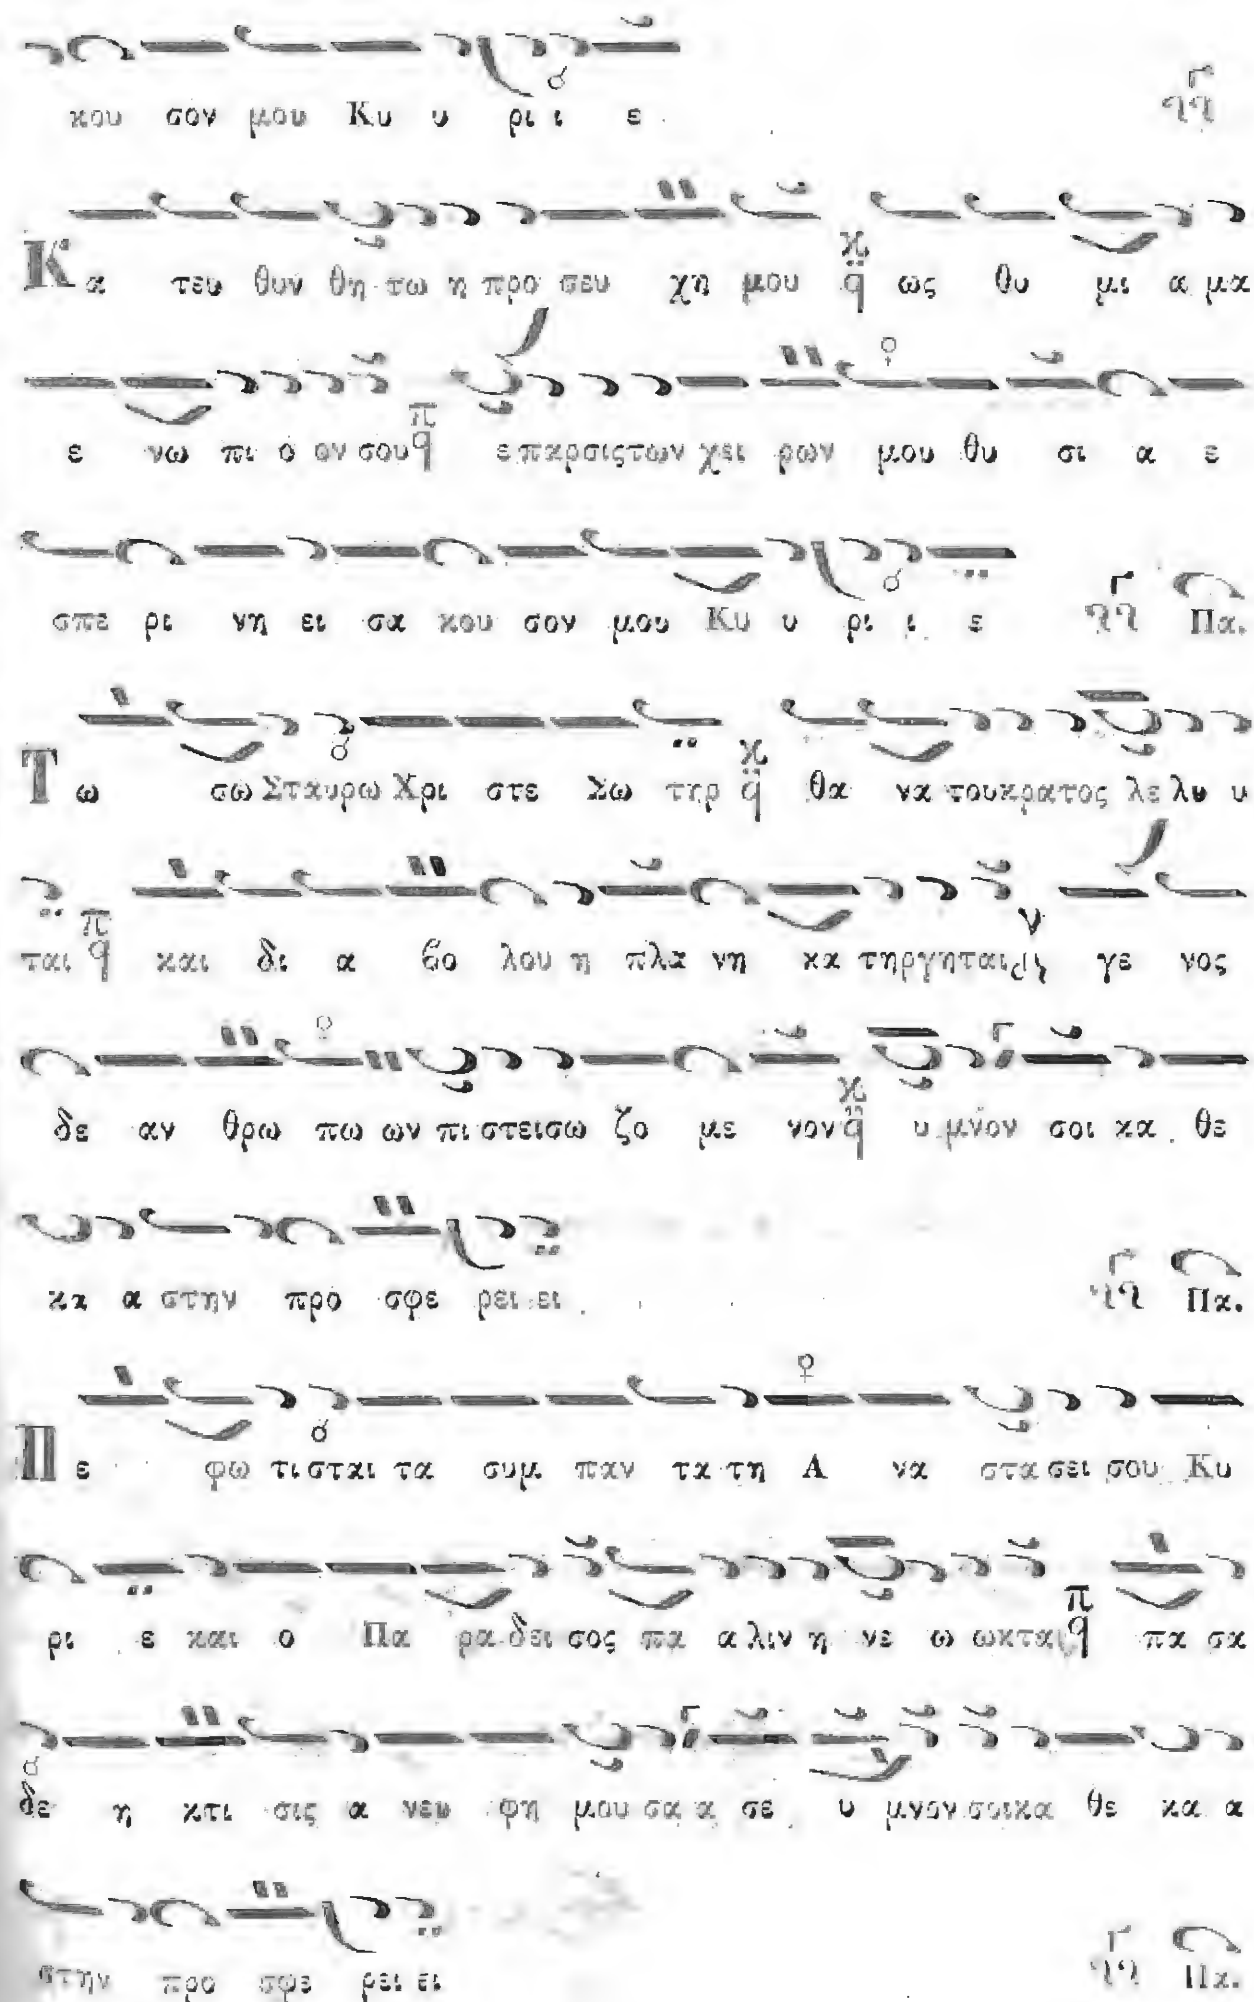 κου σον μου Κυ υ ρι ι ε
Κα τευ θυν θη τω η προ σευ χη μου ως θυ μι α μα
ε νω πι ο ον σου ε παρσιςτων χει ρων μου θυ σι α ε
σπε ρι νη ει σα κου σον μου Κυ υ ρι ι ε Πα.
Τω σω Σταυρω Χρι στε Σω τηρ θα να τουκρατος λε λυ υ
ται και δι α βο λου η πλα νη κα τηργηται γε νος
δε αν θρω πω ων πι στεισω ζο με νον υ μνον σοι κα θε
κα α στην προ σφε ρει ει Πα.
Πε φω τι σται τα συμ παν τα τη Α να στα σει σου Κυ
ρι ε και ο Πα ρα δει σος πα α λιν η νε ω ωκται πα σα
δε η κτι σις α νευ φη μου σα α σε υ μνον σοικα θε κα α
στην προ σφε ρει ει Πα.